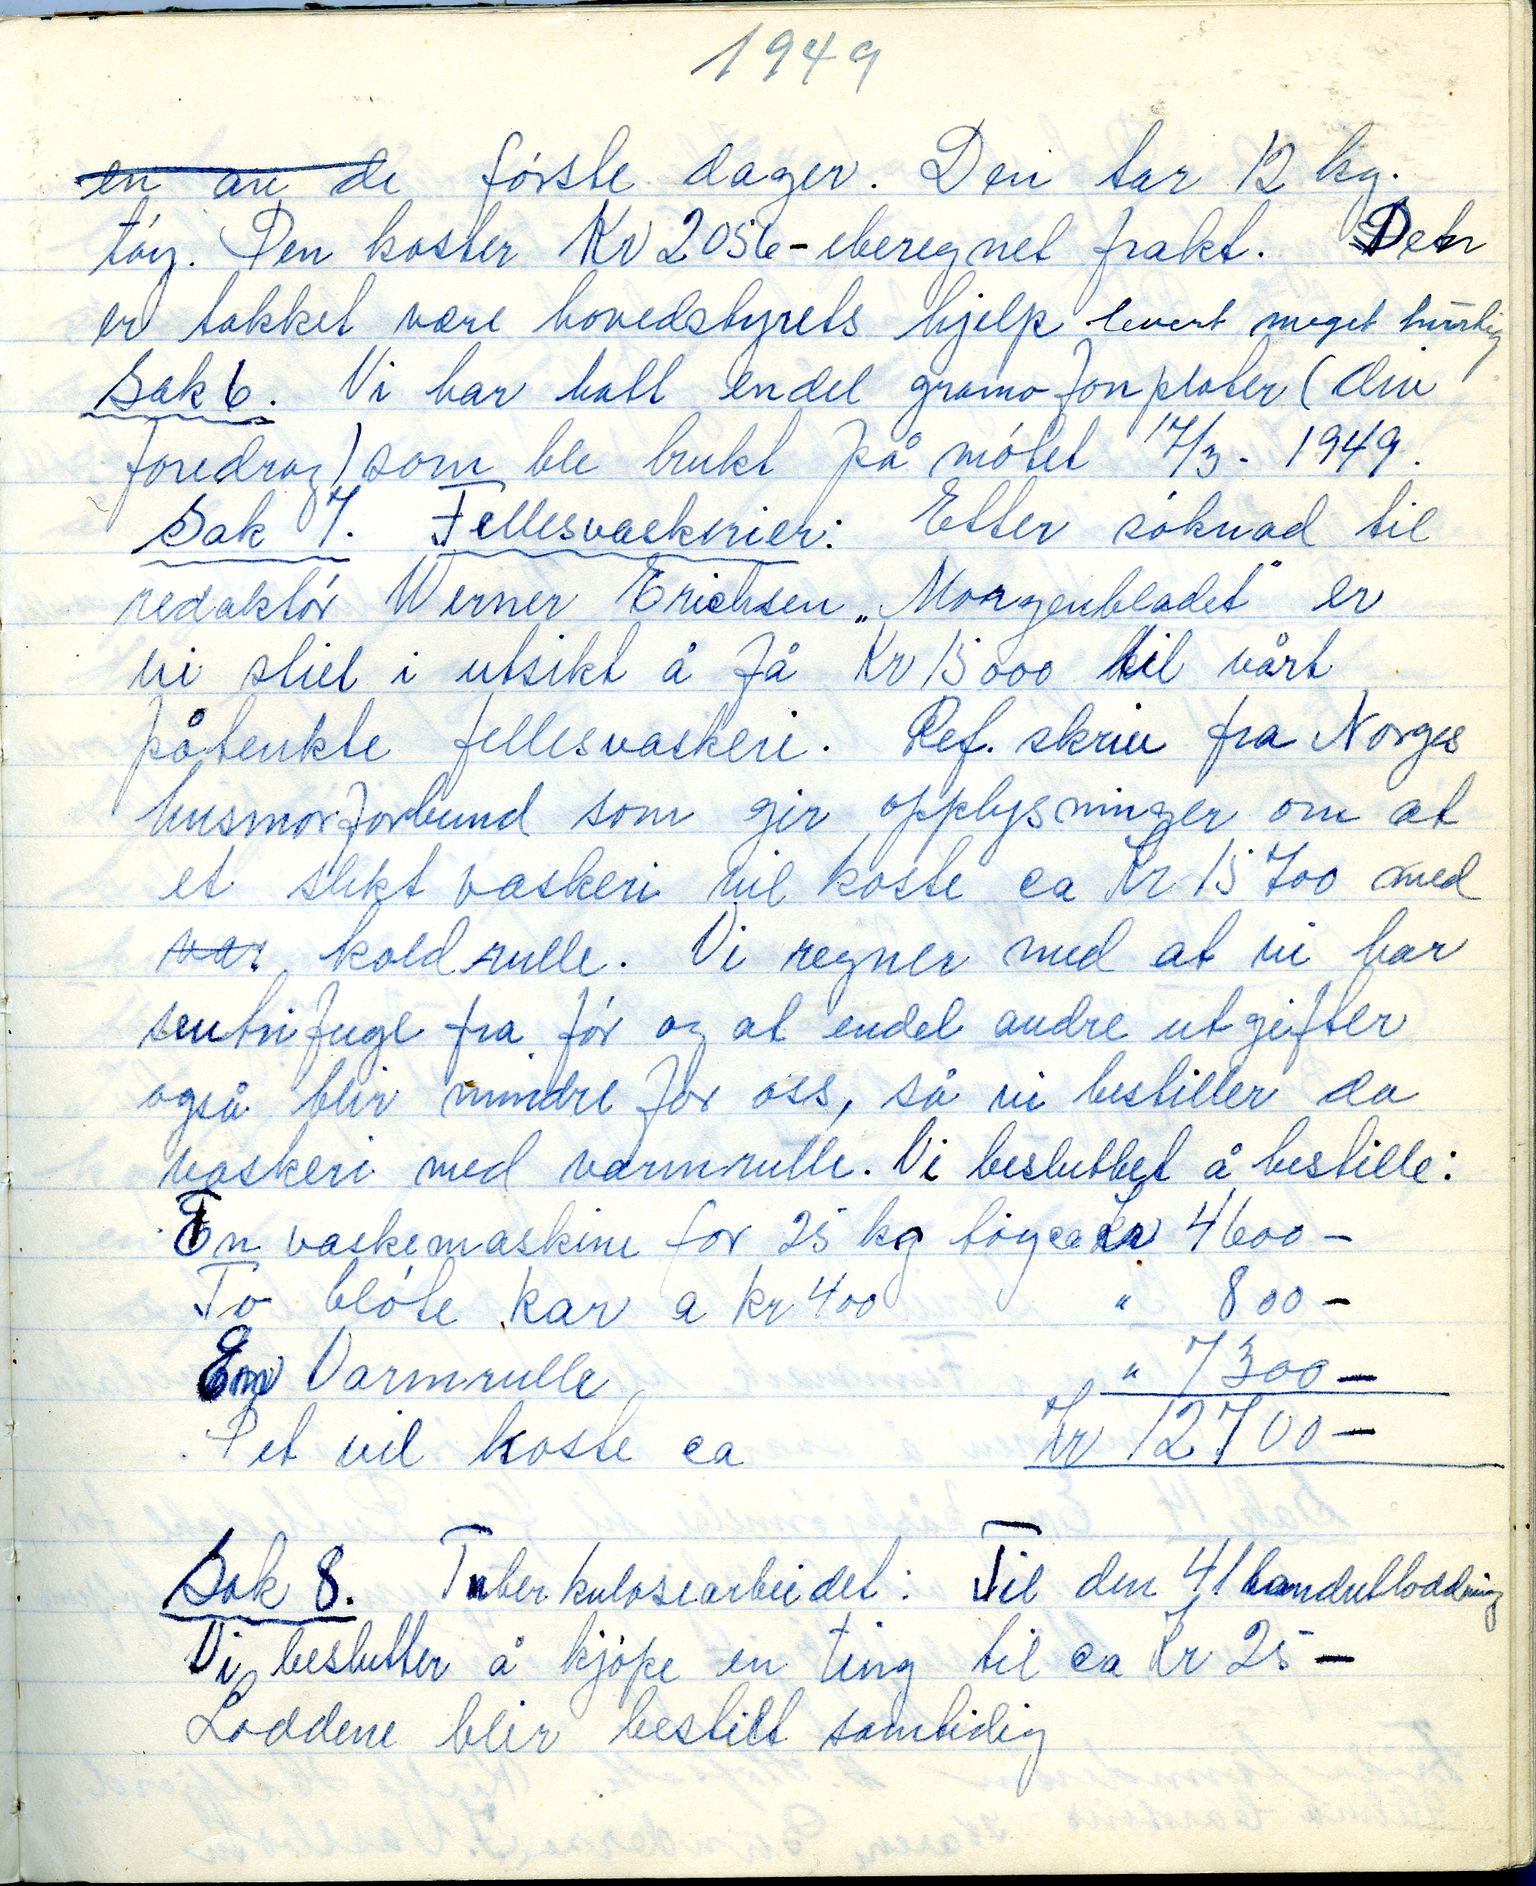 1949
en av de første dager. Den tar 12 kg.
tøy. Den koster Kr 2056- iberegnet frakt. Den
er takket være hovedstyrets hjelp levert meget hurtig
Sak 6. Vi har hatt endel gramofonplater (div
foredrag) som ble brukt på møtet 17/3 - 1949.
Sak 7. Fellesvaskerier: Etter søknad til
redaktør Werner Erichsen „Morgenbladet" er
vi stilt i utsikt å få Kr 15000 til vårt
påtenkte fellesvaskeri. Ref. skriv fra Norges
husmorforbund som gir opplysninger om at
et slikt vaskeri vil koste ca Kr 15700 med
var koldrulle. Vi regner med at vi har
sentrifuge fra før og at endel andre utgifter
også blir mindre for oss, så vi bestiller da
vaskeri med varmrulle. Vi besluttet å bestille:
En vaskemaskine for 25 kg tøy ca Kr 4600 -
To bløte kar a kr 400 " 800 -
En Varmrulle " 7300 -
Det vil koste ca Kr 12700 -
Sak 8. Tuberkulosearbeidet: Til den 41 landsutlodding
Vi beslutter å kjøpe en ting til ca Kr 25 -
Loddene blir bestilt samtidig